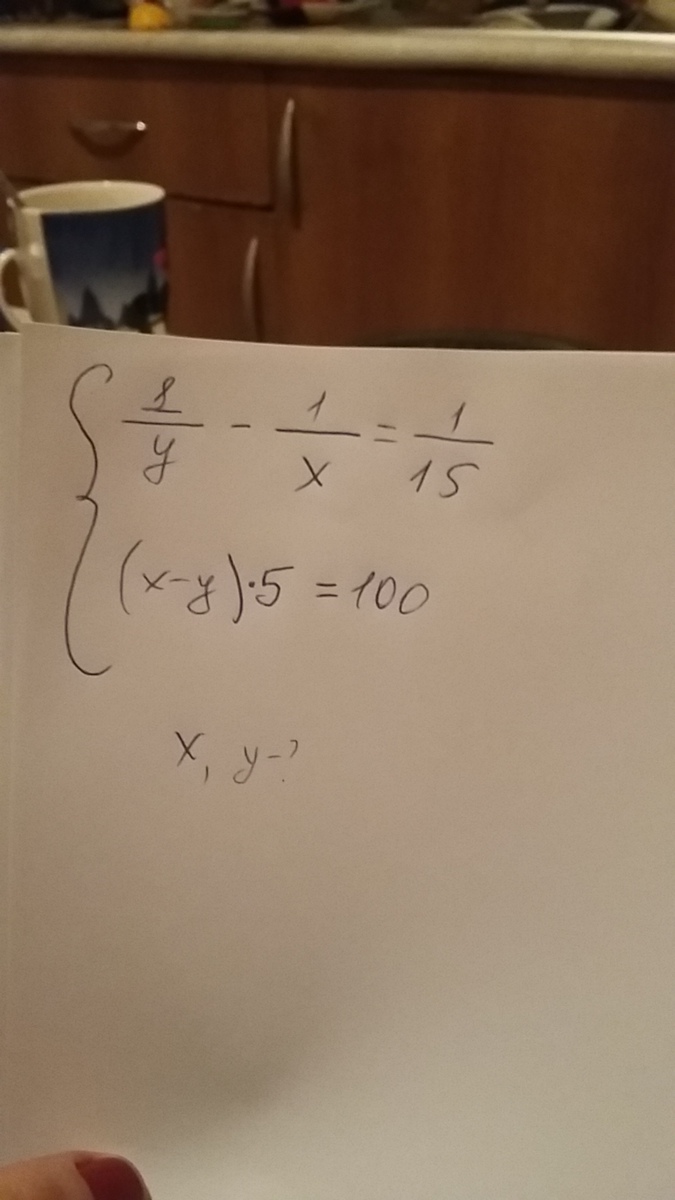 1/y - 1/x = 1/15
(x-y)·5 = 100
x, y-?